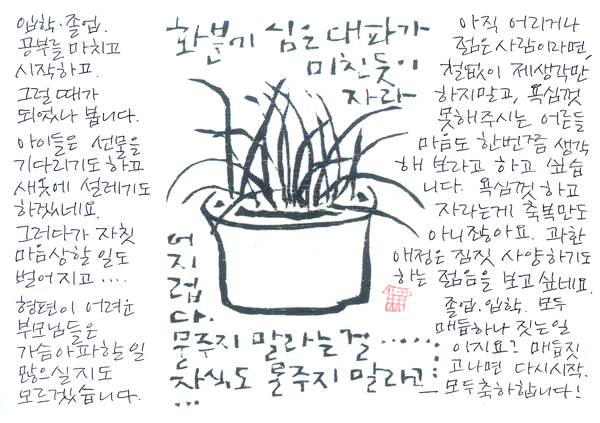 화분에 심은 대파가
미친듯이
자라
어
지
럽
다.
물주지 말라는걸......
자식도 물주지 말라고...
...
입학·졸업.
공부를 마치고
시작하고.
그럴 때가
되었나 봅니다.
아이들은 선물을
기다리기도 하고
새옷에 설레기도
하겠네요.
그러다가 자칫
마음상할 일도
벌어지고....
형편이 어려운
부모님들은
가슴아파할 일
많으실지도
모르겠습니다.
아직 어리거나
젊은 사람이라면,
철없이 제생각만
하지말고, 흡족껏
못해주시는 어른들
마음도 한번쯤 생각
해 보라고 하고 싶습
니다. 욕심껏 하고
자라는게 축복만도
아니잖아요. 과한
애정은 짐짓 사양하기도
하는 젊음을 보고 싶네요.
졸업·입학. 모두
매듭하나 짓는일
이지요? 매듭짓
고나면 다시시작.
— 모두축하합니다!